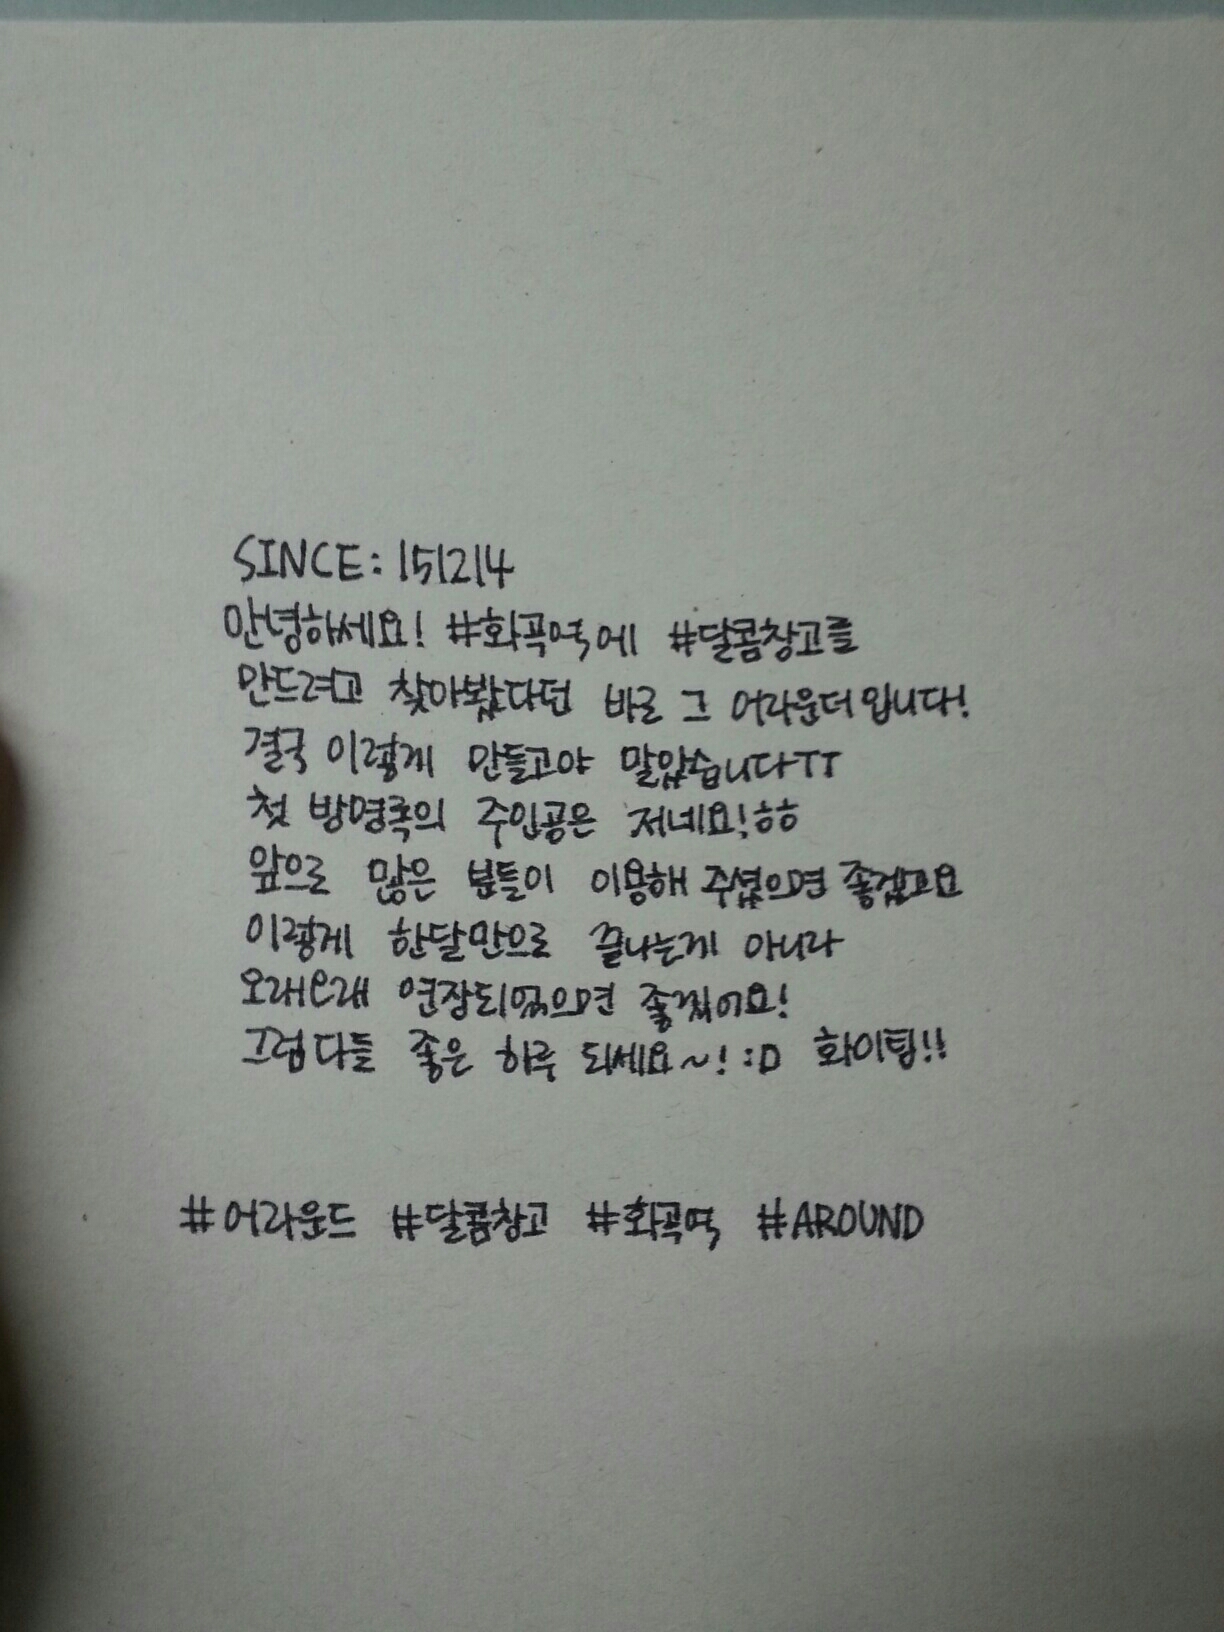 SINCE: 151214
안녕하세요! #화곡역에 #달콤창고를
만드려고 찾아봤다던 바로 그 어라운더입니다!
결국 이렇게 만들고야 말았습니다TT
첫 방명록의 주인공은 저네요!ㅎㅎ
앞으로 많은 분들이 이용해 주셨으면 좋겠고요
이렇게 한달만으로 끝나는게 아니라
오래오래 연장되었으면 좋겠어요!
그럼 다들 좋은 하루 되세요~! :D 화이팅!!
#어라운드 #달콤창고 #화곡역 #AROUND